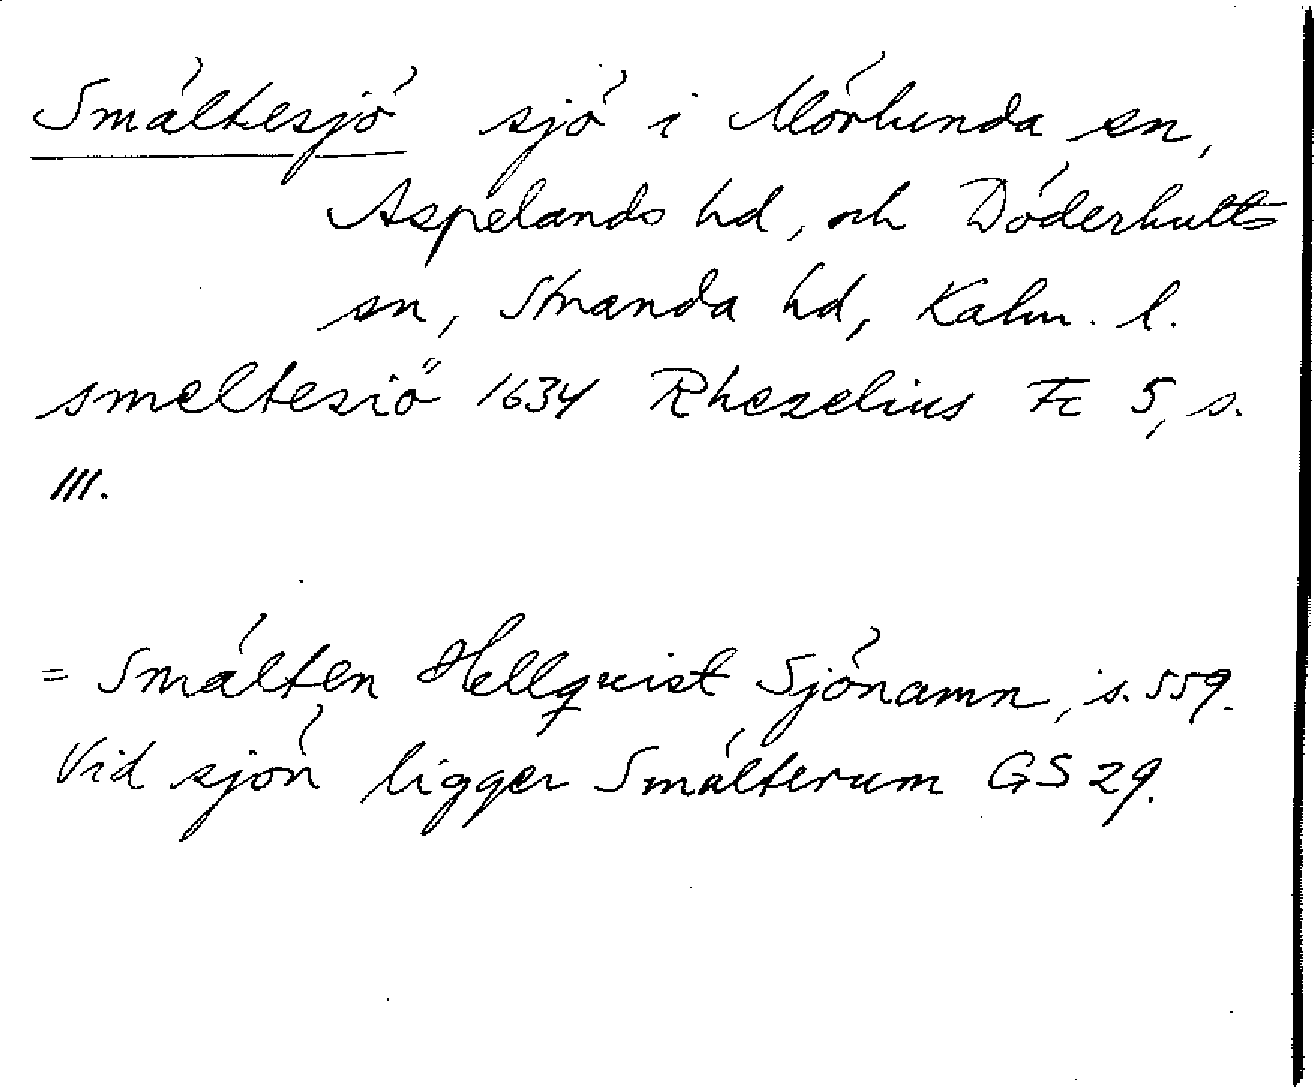 Smältesjö sjö i Mörlunda sn,
Aspelands hd, och Döderhults
sn, Stranda hd, Kalm. l.
smeltesiö 1634 Rhezelius Fc 5, s.
111.
= Smälten Hellquist Sjönamn, s. 559.
Vid sjön ligger Smälterum GS 29.